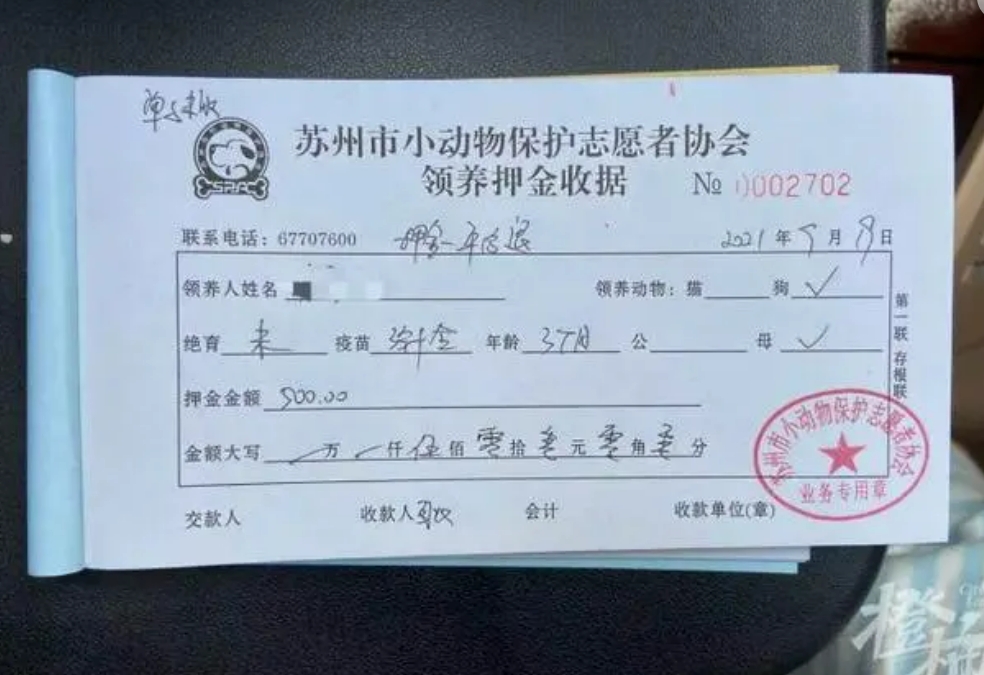 苏州市小动物保护志愿者协会
领养押金收据 № 0002702
联系电话：67707600 押金一年后退 2021年9月19日
领养人姓名 领养动物：猫 狗✓
绝育 未 疫苗 年龄 3个月 公 母 ✓
押金金额 500.00
金额大写 万 仟 伍 佰 零 拾 零 元 零 角 零 分
交款人 收款人 会计 收款单位(章)
第一联 存根联
苏州市小动物保护志愿者协会
业务专用章
橙柿